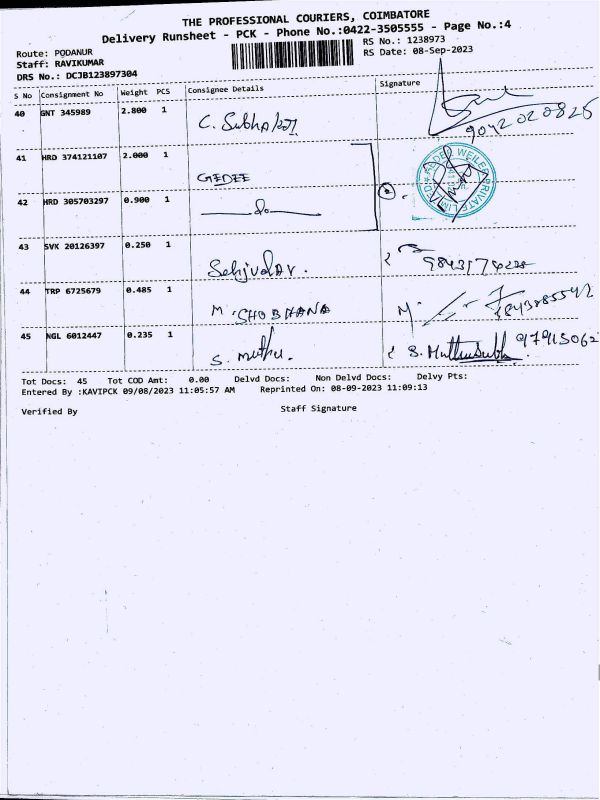 THE PROFESSIONAL COURIERS, COIMBATORE
Delivery Runsheet - PCK - Phone No.:0422-3505555 - Page No.:4
Route: PODANUR
RS No.: 1238973
Staff: RAVIKUMAR
RS Date: 08-Sep-2023
DRS No.: DCJB123897304
S No Consignment No Weight PCS Consignee Details Signature
40 GNT 345989 2.800 1
9042020825
41 HRD 374121107 2.000 1 GEDEE
42 HRD 305703297 0.900 1 Do
43 SVK 20126397 0.250 1
44 TRP 6725679 0.485 1 M. SHOBHANA
45 NGL 6012447 0.235 1 S. muthu.
Tot Docs: 45 Tot COD Amt: 0.00 Delvd Docs: Non Delvd Docs: Delvy Pts:
Entered By :KAVIPCK 09/08/2023 11:05:57 AM Reprinted On: 08-09-2023 11:09:13
Verified By Staff Signature